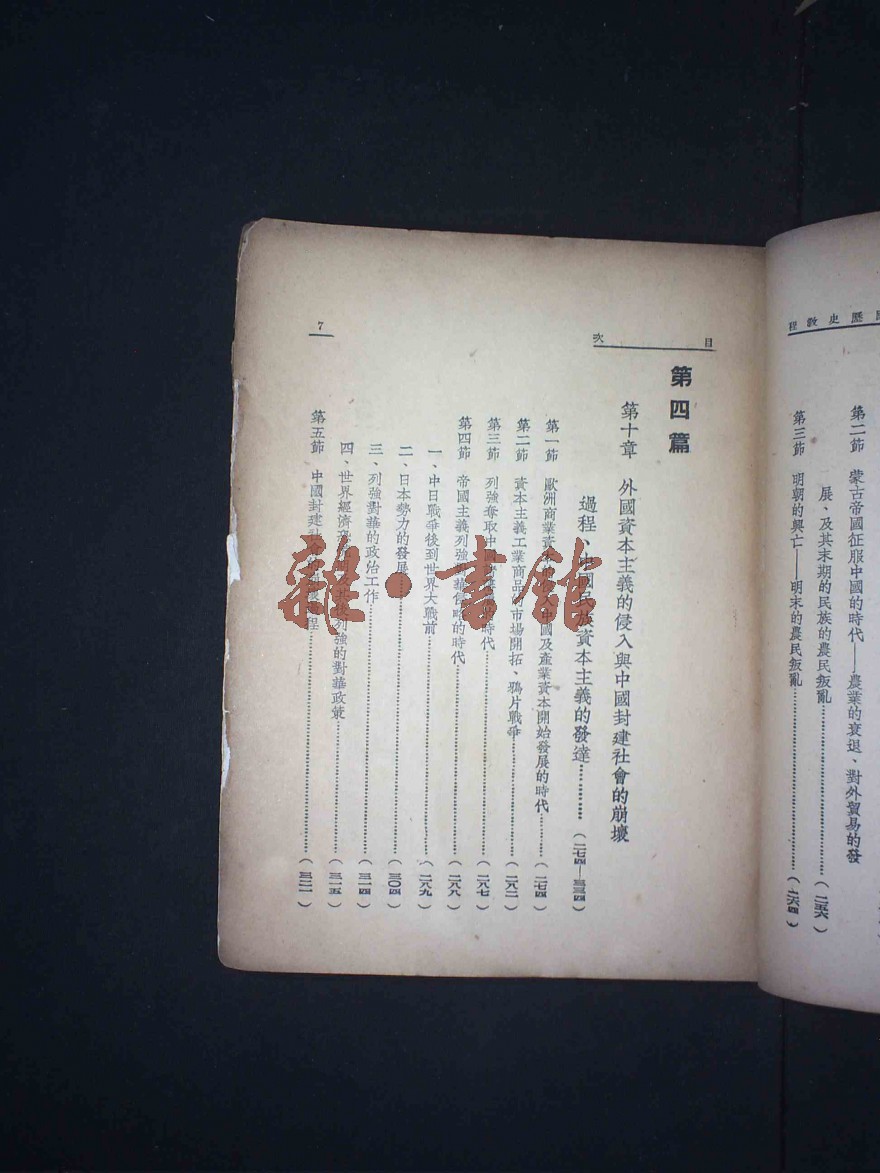 國歷史教程
第二節　蒙古帝國征服中國的時代——農業的衰退、對外貿易的發
展、及其末期的民族的農民叛亂……（二五六）
第三節　明朝的興亡——明末的農民叛亂……（二六四）
目次
第四篇
第十章　外國資本主義的侵入與中國封建社會的崩壞
過程、中國民族資本主義的發達……（二七四—三三四）
第一節　歐洲商業資本 中國及產業資本開始發展的時代……（二七四）
第二節　資本主義工業商品的市場開拓、鴉片戰爭……（二八二）
第三節　列強奪取中 時代……（二八七）
第四節　帝國主義列強 華侵略的時代……（二八八）
一、中日戰爭後到世界大戰前……（二八九）
二、日本勢力的發展……（三〇四）
三、列強對華的政治工作……（三一四）
四、世界經濟 列強的對華政策……（三一五）
第五節　中國封建社會的 程……（三二一）
7
雜·書館